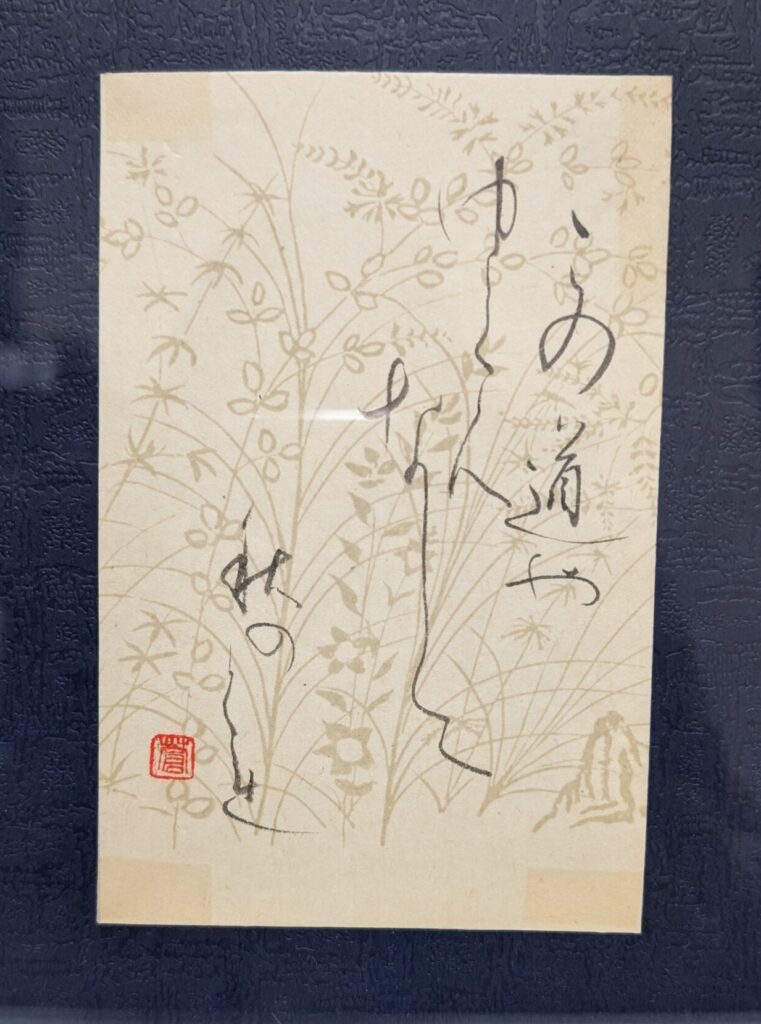 この道や
ゆく人
なしに
秋の
くれ
蒼